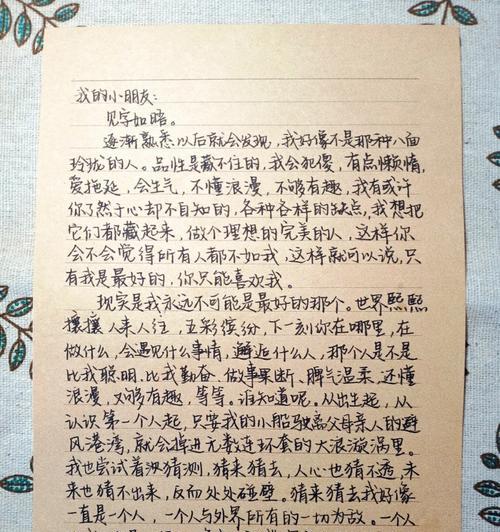 我的小朋友:
见字如晤。
逐渐熟悉以后就会发现,我好像不是那种八面
玲珑的人。品性是藏不住的,我会犯傻,有点懒惰,
爱拖延,会生气,不懂浪漫,不够有趣,我有或许
你了然于心却不自知的,各种各样的缺点,我想把
它们都藏起来,做个理想的完美的人,这样你
会不会觉得所有人都不如我,这样就可以说,只
有我是最好的,你只能喜欢我。
现实是我永远不可能是最好的那个。世界熙熙
攘攘人来人往,五彩缤纷,下一刻你在哪里,在
做什么,会遇见什么事情,邂逅什么人,那个人是不是
比我聪明,比我勤奋,做事果断、脾气温柔,还懂
浪漫,又够有趣,等等。谁知道呢。从出生起,从
认识第一个人起,只要我的小船驶离父母亲人的避
风港湾,就会掉进无数连环套的大浪漩涡里。
我也尝试着汲猜测,猜来猜去,人心也猜不透,未
来也猜不出来,反而处处碰壁。猜来猜去我好像
一直是个人,一个人与外界所有的一切为敌。一个人